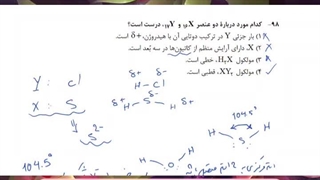 ۹۸- کدام مورد دربارهٔ دو عنصر ₁₆X و ₁₇Y، درست است؟
۱) بار جزئی Y در ترکیب دوتایی آن با هیدروژن، δ+ است.
۲) X، دارای آرایش منظم از کاتیون‌ها در سه بُعد است.
۳) مولکول H₂X، خطی است.
۴) مولکول XY₂، قطبی است.
Y : Cl
δ+ δ-
H-Cl
X : S
δ+ δ- δ+
H S H
S²⁻
104.5°
S
H H
104.5°
O
H H